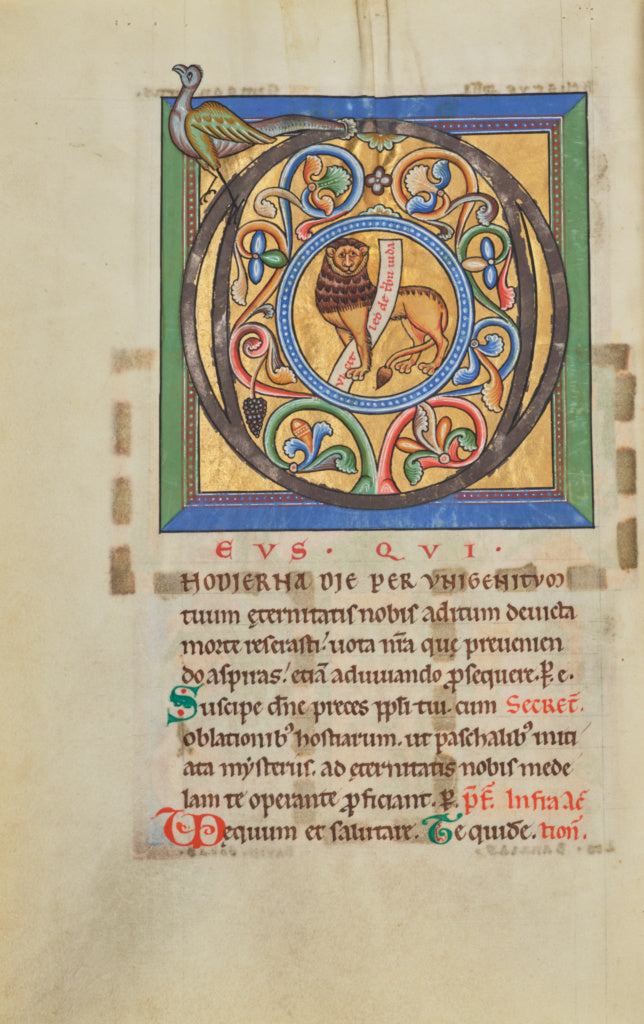 D
vicit leo de tribu iuda
EVS · QVI ·
HODIERNA DIE PER VNIGENITVM
tuum ęternitatis nobis aditum deuicta
morte reserasti, uota nr̄a quę preuenien
do aspiras, etiā adiuuando ꝓsequere. P̄. e.
Suscipe dn̄e preces ppl̄i tui cum Secret̄.
oblationibꝰ hostiarum. ut paschalibꝰ initi
ata mysteriis. ad ęternitatis nobis mede
lam te operante ꝓficiant. P̄. p̄f. Infra ac̄
Vere dignum et salutare. Te quidē. tion̄.